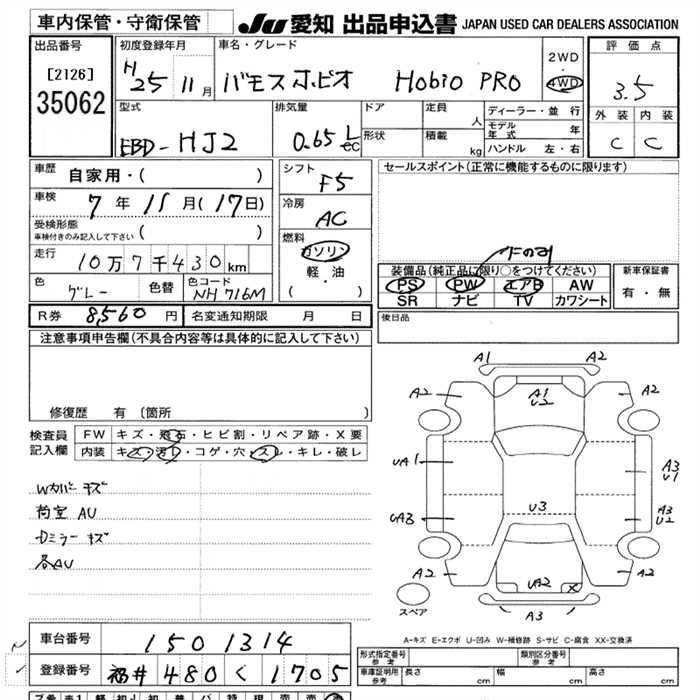 車内保管・守衛保管
JU 愛知 出品申込書 JAPAN USED CAR DEALERS ASSOCIATION
出品番号
[2126]
35062
初度登録年月
H25 11月
車名・グレード
バモスホビオ Hobio PRO
2WD
・
4WD
評価点
3.5
外装 内装
C C
型式
EBD-HJ2
排気量
0.65 L
cc
ドア
形状
定員
人
積載
kg
ディーラー・並行
モデル年式 年
ハンドル 左・右
車歴 自家用・( )
車検 7年11月(17日)
受検形態
車検付きのみ記入して下さい ( )
走行 10万7千430km
色 グレー
色替
色コード NH716M
シフト
F5
冷房
AC
燃料
ガソリン
軽・油
( )
セールスポイント(正常に機能するものに限ります)
装備品(純正品に限り○をつけてください)
PS PW エアB AW
SR ナビ TV カワシート
新車保証書
有・無
R券 8,560円 名変通知期限 月 日
後日品
注意事項申告欄(不具合内容等は具体的に記入して下さい)
修復歴 有(箇所 )
検査員記入欄
FW キズ・飛石・ヒビ割・リペア跡・X要
内装 キズ・汚レ・コゲ・穴・スレ・キレ・破レ
Wカバーキズ
荷室AU
Dミラーキズ
各AU
A1 A2
A2 A1 U2 A2
UA1 A3 U1
UA3 U3 A3 U2
A2 UA2 X A2
A3
スペア
A-キズ E-エクボ U-凹み W-補修跡 S-サビ C-腐食 XX-交換済
車台番号 1501314
登録番号 福井 480 く 1705
形式指定番号
参考
類別区分番号
参考
車庫証明用
参考
長さ cm 幅 cm 高さ cm